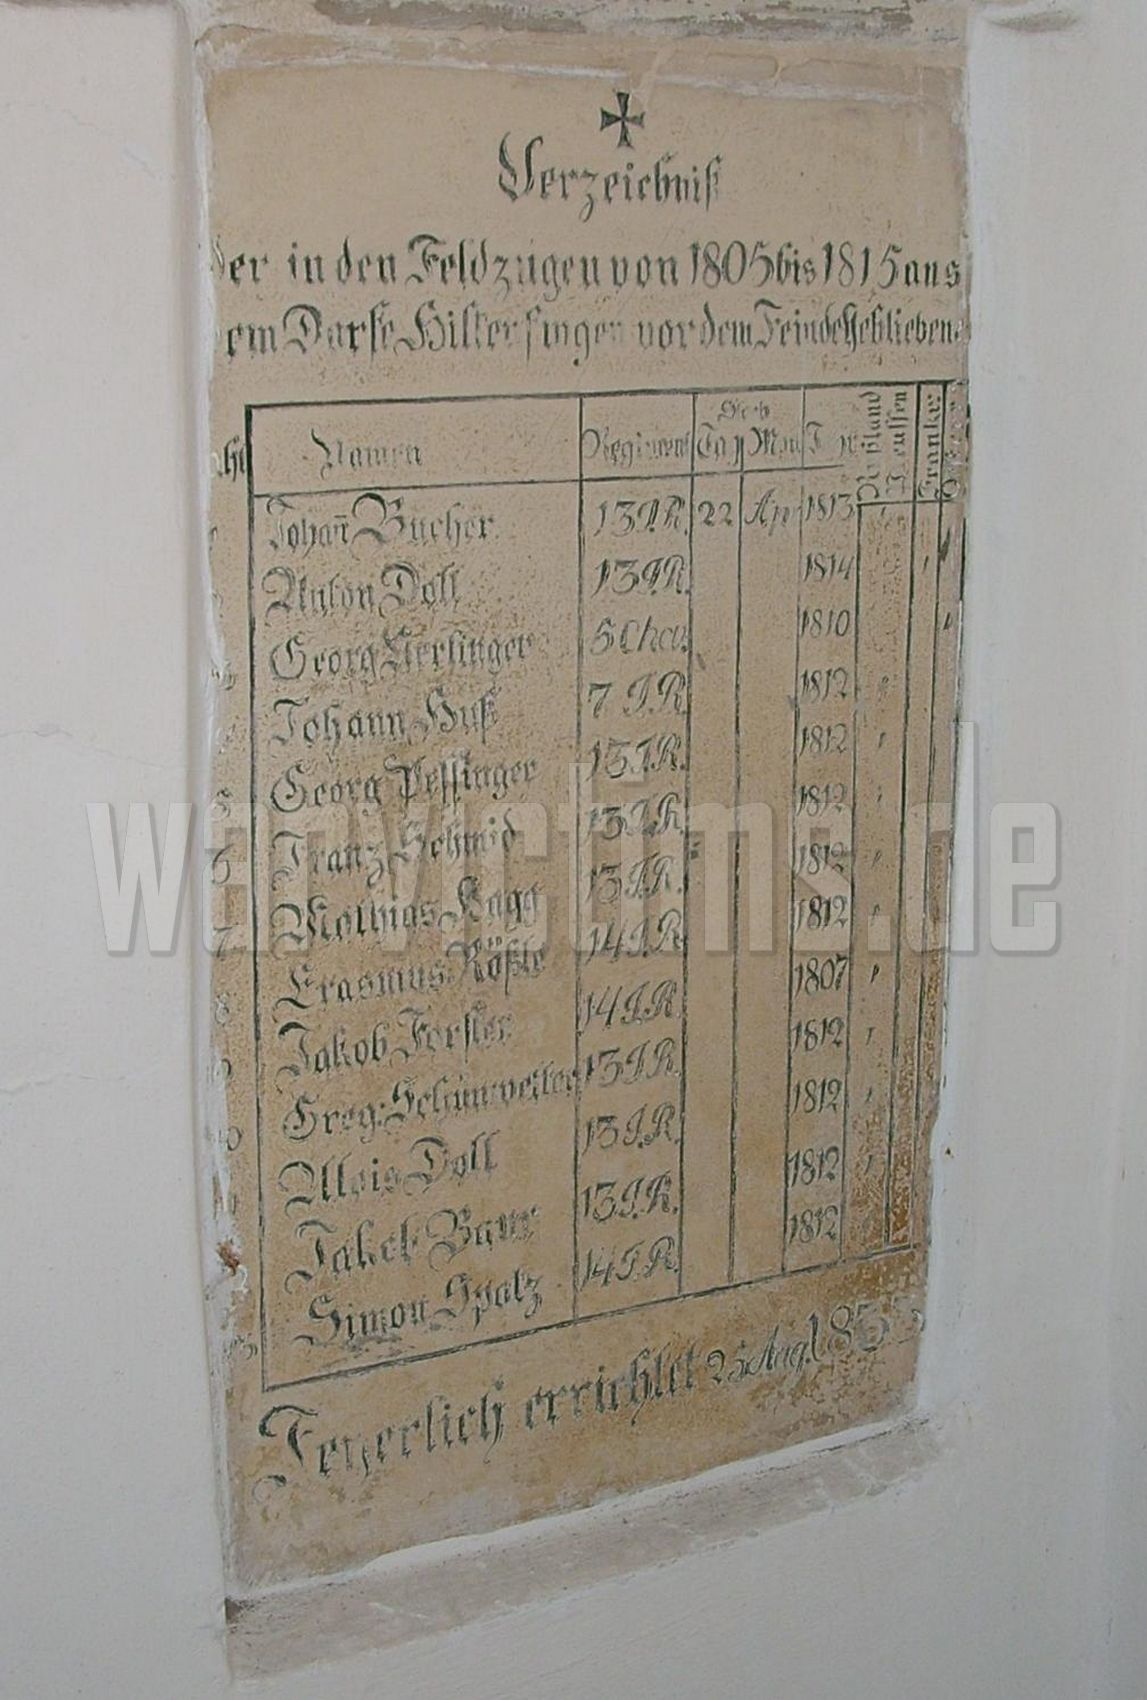 Verzeichniß
der in den Feldzügen von 1805 bis 1815 aus
dem Dorfe Hiltenfingen vor dem Feinde Gebliebene
Namen Regiment Sterb Tag Mon Rußland Preussen Frankr
Johan̄ Bucher 13 I.R. 22 Apr 1813
Anton Doll 13 I.R. 1814
Georg Nerlinger 5 Chev. 1810
Johann Huß 7 I.R. 1812
Georg Pessinger 13 I.R. 1812
Franz Schmid 13 I.R. 1812
6 Mathias Nagg 13 I.R. 1812
7 Erasmus Rößle 14 I.R. 1812
8 Jakob Forster 14 I.R. 1807
Greg: 13 I.R. 1812
10 Alois Doll 13 I.R. 1812
Jakob Baur 13 I.R. 1812
Simon Spatz 14 I.R. 1812
Feyerlich errichtet 25 Aug. 1833
warvictims.de